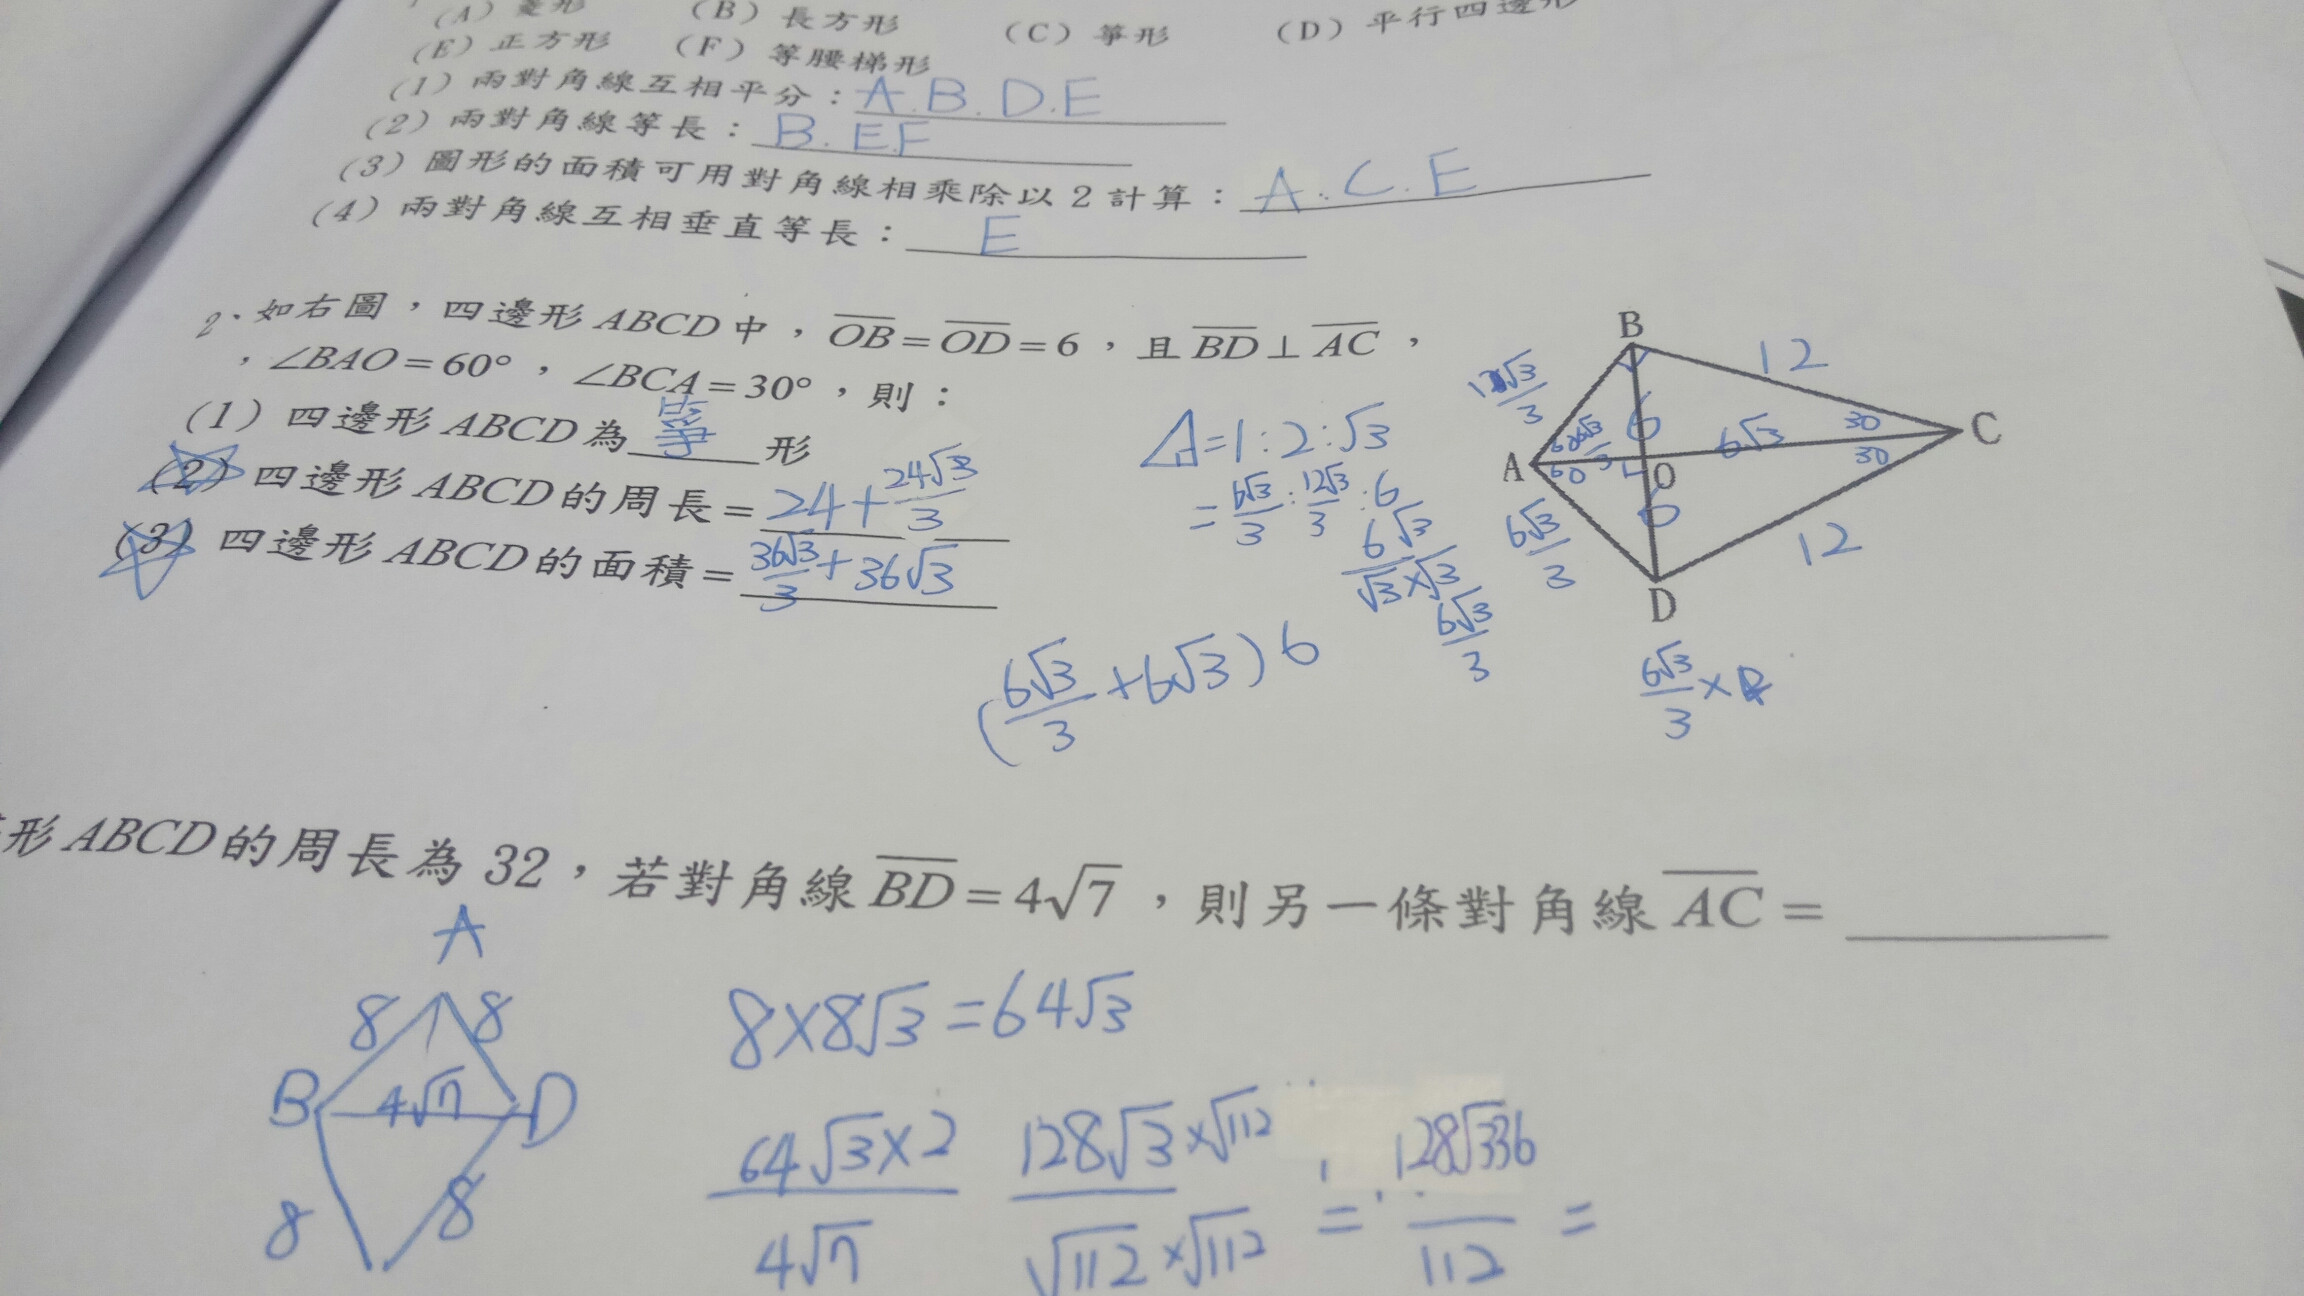 (A) 菱形 (B) 長方形 (C) 箏形 (D) 平行四邊形
(E) 正方形 (F) 等腰梯形
(1) 兩對角線互相平分：A.B.D.E
(2) 兩對角線等長：B.E.F
(3) 圖形的面積可用對角線相乘除以2計算：A.C.E
(4) 兩對角線互相垂直等長：E
2、如右圖，四邊形ABCD中，OB=OD=6，且BD⊥AC，
，∠BAO=60°，∠BCA=30°，則：
(1) 四邊形ABCD為箏形
(2) 四邊形ABCD的周長=24+24√3/3
(3) 四邊形ABCD的面積=36√3/3+36√3
=1:2:√3
=6√3/3:12√3/3:6
6√3/√3×√3
6√3/3
(6√3/3+6√3)6
B
12
12√3/3
6
30
C
6√3
A
60
60
O
30
6
6√3/3
12
D
6√3/3×
形ABCD的周長為32，若對角線BD=4√7，則另一條對角線AC=
A
8 8
B 4√7 D
8 8
8×8√3=64√3
64√3×2/4√7
128√3×√112/√112×√112 = 128√336/112 =